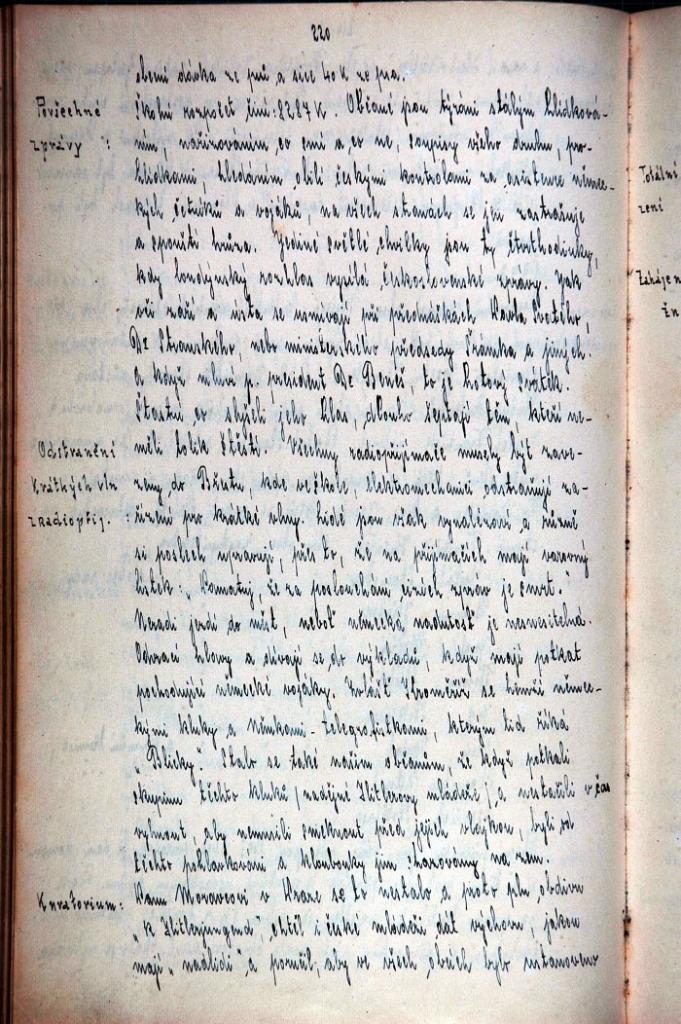 220
obecní dávka ze psů a sice 40 K ze psa.
Povšechné
zprávy :
Školní rozpočet činí: 8287 K. Občané jsou týráni stálým hlídková-
ním, nařizováním co smí a co ne, soupisy všeho druhu, pro-
hlídkami, hledáním obilí českými kontrolami za asistence němec-
kých četníků a vojáků, na všech stranách se jen zastrašuje
a spouští hrůza. Jediné světlé chvilky jsou ty čtvrthodinky,
kdy londýnský rozhlas vysílá československé zprávy. Jak
oči září a ústa se usmívají při přednáškách Pavla Svatého,
Dr Stránského, nebo ministerského předsedy Šrámka a jiných.
A když mluví p. president Dr Beneš, to je hotový svátek.
Šťastni co slyšeli jeho hlas, dlouho šeptají těm, kteří ne-
měli tolik štěstí.
Odstranění
krátkých vln
z radiopřij.
Všechny radiopřijímače musely být zave-
zeny do Březtu, kde ve škole, elektromechanici odstraňují za-
řízení pro krátké vlny. Lidé jsou však vynalézaví a různě
si poslech upravují, přes to, že na přijímačích mají varovný
lístek: „Pamatuj, že za poslouchání cizích zpráv je smrt."
Neradi jezdí do měst, neboť německá nadutost je nesnesitelná.
Odvrací hlavy a dívají se do výkladů, když mají potkat
pochodující německé vojáky. Zvlášť Kroměříž se hemží němec-
kými kluky a Němkami - telegrafistkami, kterým lid říká
„Blicky". Stalo se také našim občanům, že když potkali
skupinu těchto kluků /nadějné Hitlerovy mládeže/ a nestačili v čas
vyhnout, aby nemusili smeknout před jejich vlajkou, byli od
těchto pohlavkováni a klobouky jim shazovány na zem.
Kuratorium:
Panu Moravcovi v Praze se to nestálo a proto pln obdivu
„k Hitlerjungend" chtěl i české mládeži dát výchovu, jakou
mají „nadlidi" a poručil, aby ve všech obcích bylo ustanoveno
Totální
zení
Zahájen
žn